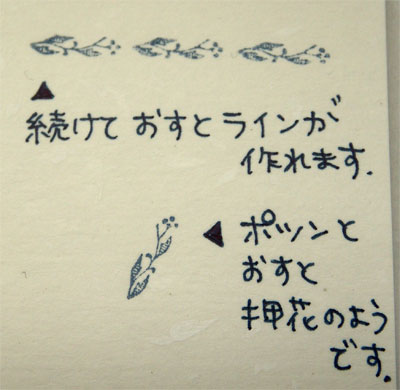 続けておすとラインが
作れます.
ポツンと
おすと
押花のよう
です.